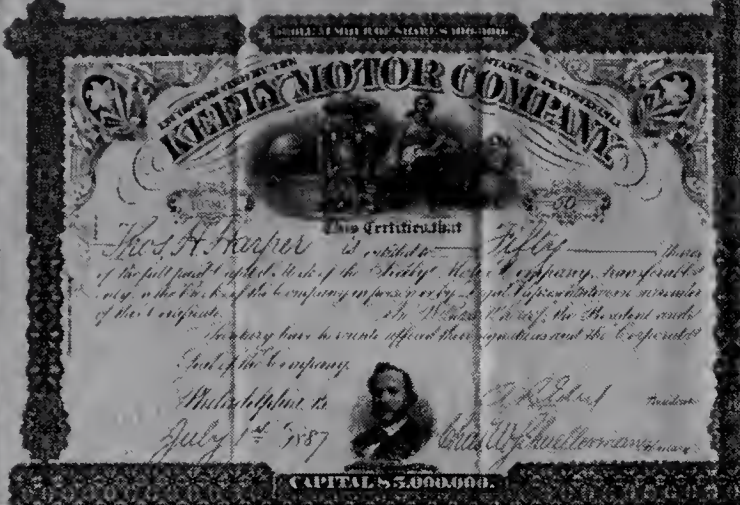 WHOLE NUMBER OF SHARES 100,000.
INCORPORATED BY THE STATE OF PENNSYLVANIA
KEELY MOTOR COMPANY
50
This Certifies that
Thos. H. Harper is entitled to Fifty Shares
of the full paid Capital Stock of the Keely Motor Company, transferable
only on the Books of the Company in person or by Legal Representative on surrender
of this Certificate. In Witness Whereof, the President and
Secretary have hereunto affixed their signatures and the Corporate
Seal of the Company.
Philadelphia, Pa. President
July 1st 1887 Secretary
CAPITAL $5,000,000.